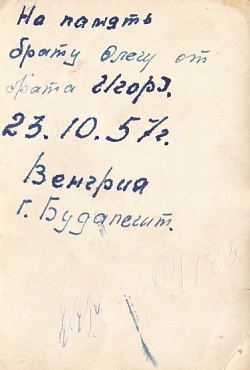 На память
брату Олегу от
брата Игоря.
23.10.57г.
Венгрия
г. Будапешт.